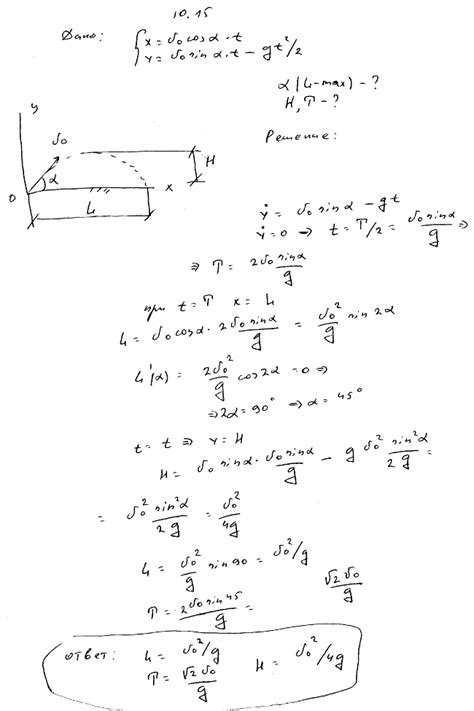 10.15
Дано: { x = v₀ cos α · t
y = v₀ sin α · t − gt²/2
α (L-max) - ?
H, T - ?
Решение:
y
v₀
H
α
O
x
L
ẏ = v₀ sin α − gt
ẏ = 0 ⇒ t = T/2 = v₀ sin α / g ⇒
⇒ T = 2v₀ sin α / g
при t = T x = L
L = v₀ cos α · 2v₀ sin α / g = v₀² / g sin 2α
L'(α) = 2v₀² / g cos 2α = 0 ⇒
⇒ 2α = 90° ⇒ α = 45°
t = t ⇒ y = H
H = v₀ sin α · v₀ sin α / g − g v₀² sin² α / 2g =
= v₀² sin² α / 2g = v₀² / 4g
L = v₀² / g sin 90 = v₀² / g
T = 2v₀ sin 45 / g = √2 v₀ / g
ответ: L = v₀² / g
T = √2 v₀ / g H = v₀² / 4g